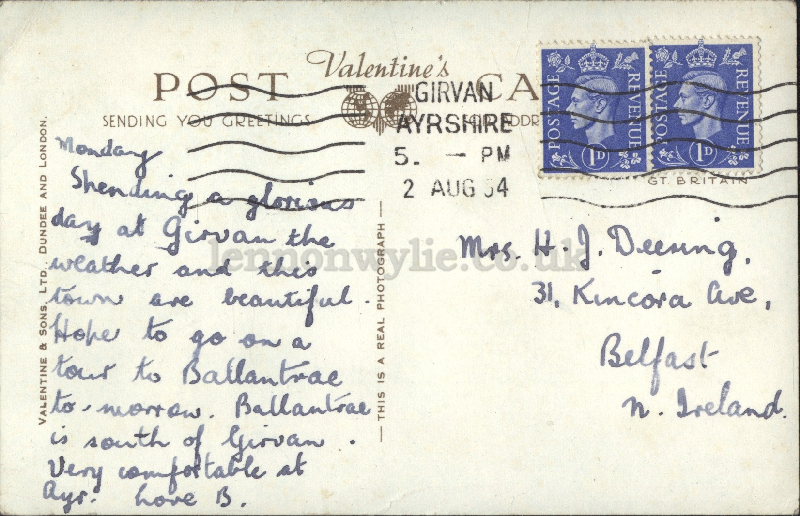 POST CARD
Valentine's
SENDING YOU GREETINGS
FOR ADDRESS
GIRVAN
AYRSHIRE
5. — PM
2 AUG 54
POSTAGE REVENUE
1D
POSTAGE REVENUE
1D
GT. BRITAIN
Monday
Spending a glorious
day at Girvan the
weather and this
town are beautiful.
Hope to go on a
tour to Ballantrae
to-morrow. Ballantrae
is south of Girvan.
Very comfortable at
Ayr. Love B.
Mrs. H. J. Deering,
31, Kincora Ave,
Belfast
N. Ireland.
VALENTINE & SONS, LTD. DUNDEE AND LONDON.
— THIS IS A REAL PHOTOGRAPH —
lennonwylie.co.uk